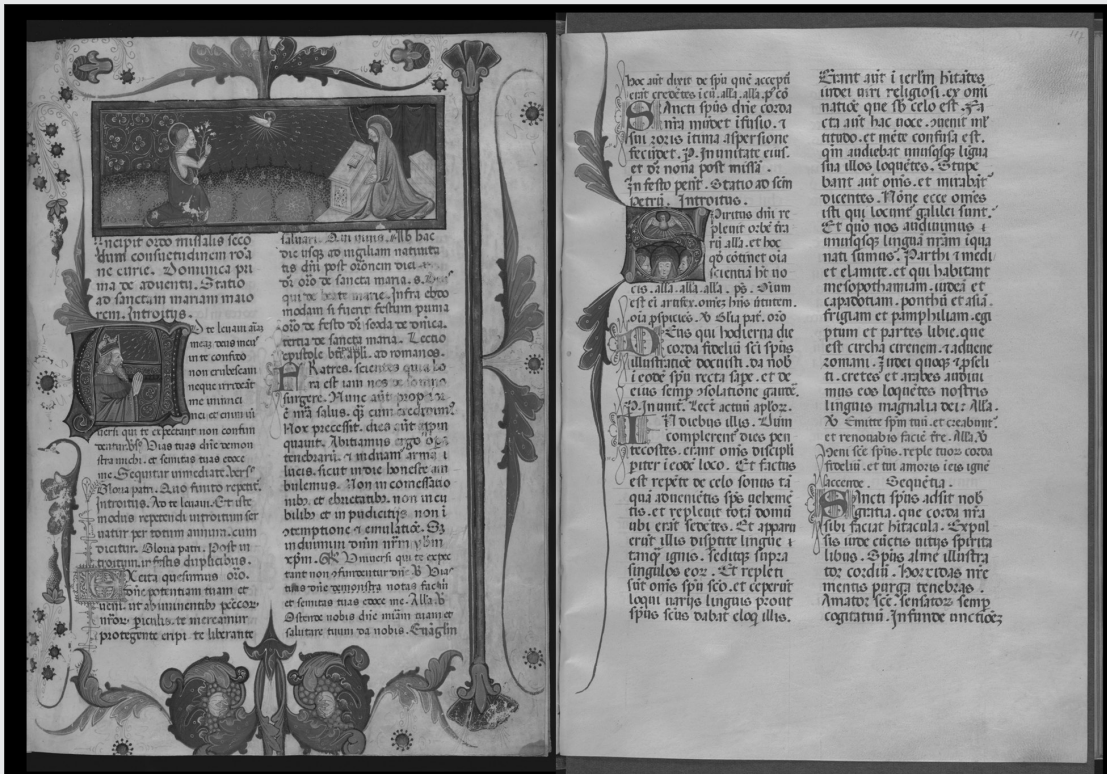 Incipit ordo missalis secū
dum consuetudinem roa
ne curie. Dominica pri
ma de adventu. Statio
ad sanctam mariam maio
rem. Introitus.
D te levavi aīaȝ
meaȝ deus meus
in te confido
non erubescam
neque irrideāt
me inimici
mei et enim ūi
versi qui te expectant non confun
dentur. ps̄. Vias tuas dn̄e demon
stra michi. et semitas tuas edoce
me. Sequitur inmediate. vers̄.
Gloria patri. Quo finito repetit̄.
introitus. Ad te levavi. Et iste
modus repetendi introitum ser
vatur per totum annum. cum
dicitur. Gloria patri. Post in
troitum. in festis duplicibus.
Xcita quesumus oro.
dn̄e potentiam tuam et
veni. ut ab iminentibȝ peccōȝ
nr̄oȝ. piculis. te mereamur
protegente eripi. te liberante
salvari. Qui vivis. Ab hac
die usqȝ ad vigiliam nativita
tis dn̄i post orōnem diei
dr̄ oro de sancta maria. s. Deus
qui de beate marie. Infra ebdo
modam si fuerit festum prima
orō de festo dr̄ scōda de dn̄ica.
tertia de sancta maria. Lectio
epistole btī. apli. ad romanos.
Ratres. scientes quia ho
ra est iam nos de somno
surgere. Nunc aūt propior
ē nr̄a salus. qȝ cum credidimȝ.
Nox precessit. dies aūt appin
quavit. Abiciamus ergo opa
tenebrarū. et induam̄ arma
lucis. sicut in die honeste am
bulemus. Non in comessatio
nibȝ. et ebrietatibȝ. non in cu
bilibȝ et impudicitijs. non ī
9temptione et emulatiōe. Sȝ
induimini dnm nrm yhm
xpm. Universi qui te expec
tant non 9fundentur dn̄e. V̄ Vias
tuas dn̄e demonstra notas fac m̄
et semitas tuas edoce me. Alla. V̄
Ostende nobis dn̄e miām tuam et
salutare tuum da nobis. Evāgłm
117
hoc aūt dixit de spū quē acceptī
erāt credētes ī eū. alla. alla. p9 cō
Sancti spūs dn̄e corda
nr̄a mūdet ifusio. et
sui roris ītima aspersione
fecūdet. p. In unitate eius.
et dr̄ nona post missā.
In festo pent̄. Statio ad scm̄
petrū. Introitus.
Spiritus dn̄i re
plevit orbē tra
rū alla. et hoc
qd cōtinet oīa
scientiā hȝ vo
cis. alla. alla. alla. ps̄. Oīum
est ei artifex. omēȝ hn̄s v̄tutem.
oīa pspiciēs. V̄ Glīa pat̄. oro
Deus qui hodierna die
corda fideliū sc̄i spūs
illustratiōe docuisti. da nob̄
ī eodē spū recta sape. et de
eius semp 9solatione gaudē.
p. In unit̄. Lect̄ actuū aplor.
In diebus illis. Dum
complerent̄ dies pen
tecostes. erant oīnis discipli
pīter ī eodē loco. Et factus
est repēte de celo sonus tā
quā advenietis spūs vehemē
tis. et replevit totā domū
ubi erāt sedētes. Et apparu
erūt illis disptite lingue
tamqȝ ignis. seditqȝ supra
singulos eoȝ. Et repleti
sūt omīs spū scō. et ceperūt
loqui varijs linguis prout
spūs scūs dabat eloq̄ illis.
Erant aūt ī ierłm hītātes
iudei viri religiosi. ex omī
natiōe que sb celo est. Fa
cta aūt hac voce. 9venit ml̄
titudo. et mēte confusa est.
qm̄ audiebat unusqsqȝ ligua
sua illos loquētes. Stupe
bant aūt omīs. et mirabāt̄
dicentes. Nōne ecce omīes
isti qui locunt̄ galilei sunt.
Et quō nos audivimus
unusqsqȝ linguā nr̄am ī qua
nati sumus. Parthi et medi
et elamite. et qui habitant
mesopothamiam. iudeā et
capadotiam. ponthū et asiā.
frigiam et pamphiliam. egi
ptum et partes libie. que
est circha cirenem. et advene
romani. Iudei quoqȝ et pseli
ti. cretes et arabes audivi
mus eos loquētes nostris
linguis magnalia dei. Alla.
V̄ Emitte spm tuū. et creabunt̄
et renovabis faciē tr̄e. Alla. V̄
Veni scē spūs. reple tuoȝ corda
fideliū. et tui amoris ī eis ignē
accende. Sequētia.
Sancti spūs adsit nob̄
gratia. que corda nr̄a
sibi faciat hītacula. Expul
sis inde cūctis vitijs spirita
libus. Spūs alme illustra
tor cordiū. Horridas nr̄e
mentis purga tenebras.
Amator scē. sensatoȝ semp
cogitatuū. Infunde unctiōeȝ